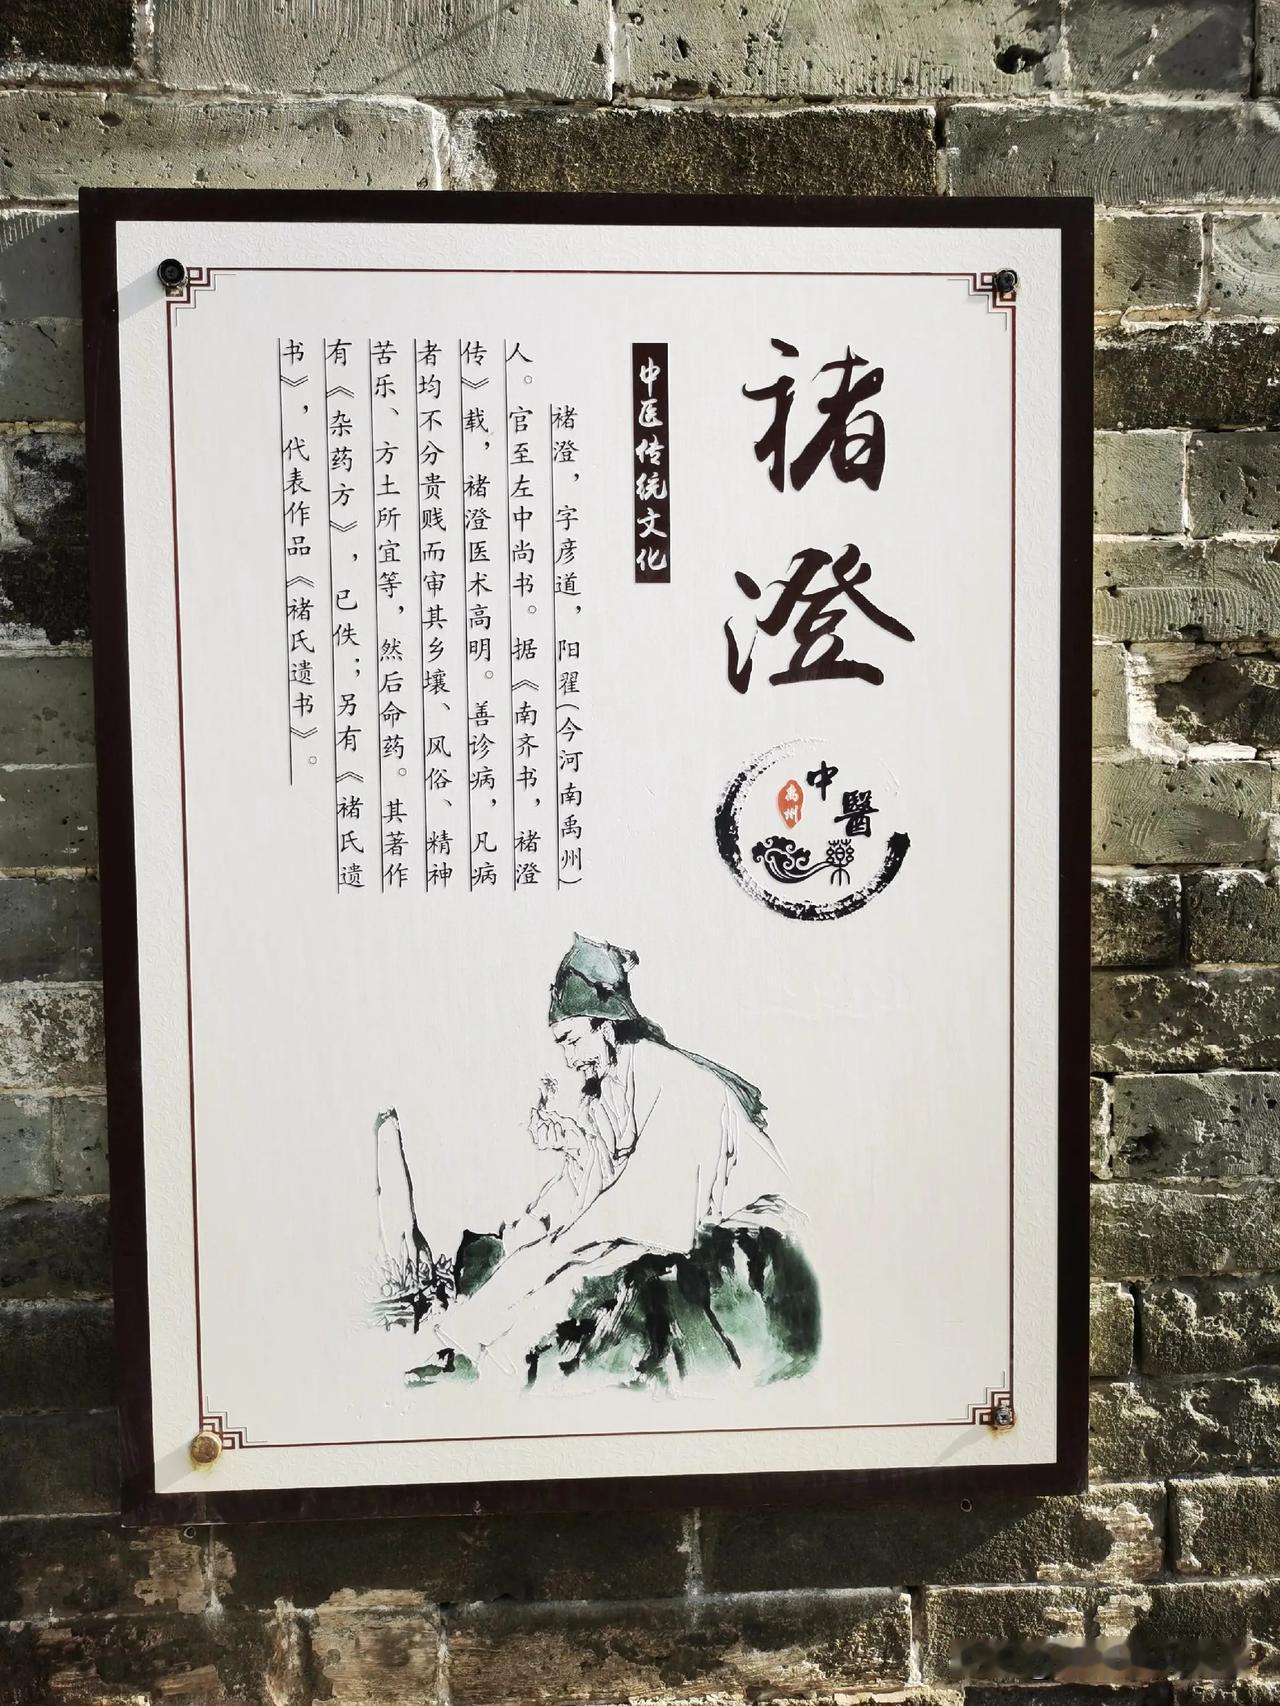 褚澄
禹州
中醫藥
中医传统文化
褚澄，字彦道，阳翟(今河南禹州)
人。官至左中尚书。据《南齐书，褚澄
传》载，褚澄医术高明。善诊病，凡病
者均不分贵贱而审其乡壤、风俗、精神
苦乐、方土所宜等，然后命药。其著作
有《杂药方》，已佚；另有《褚氏遗
书》，代表作品《褚氏遗书》。